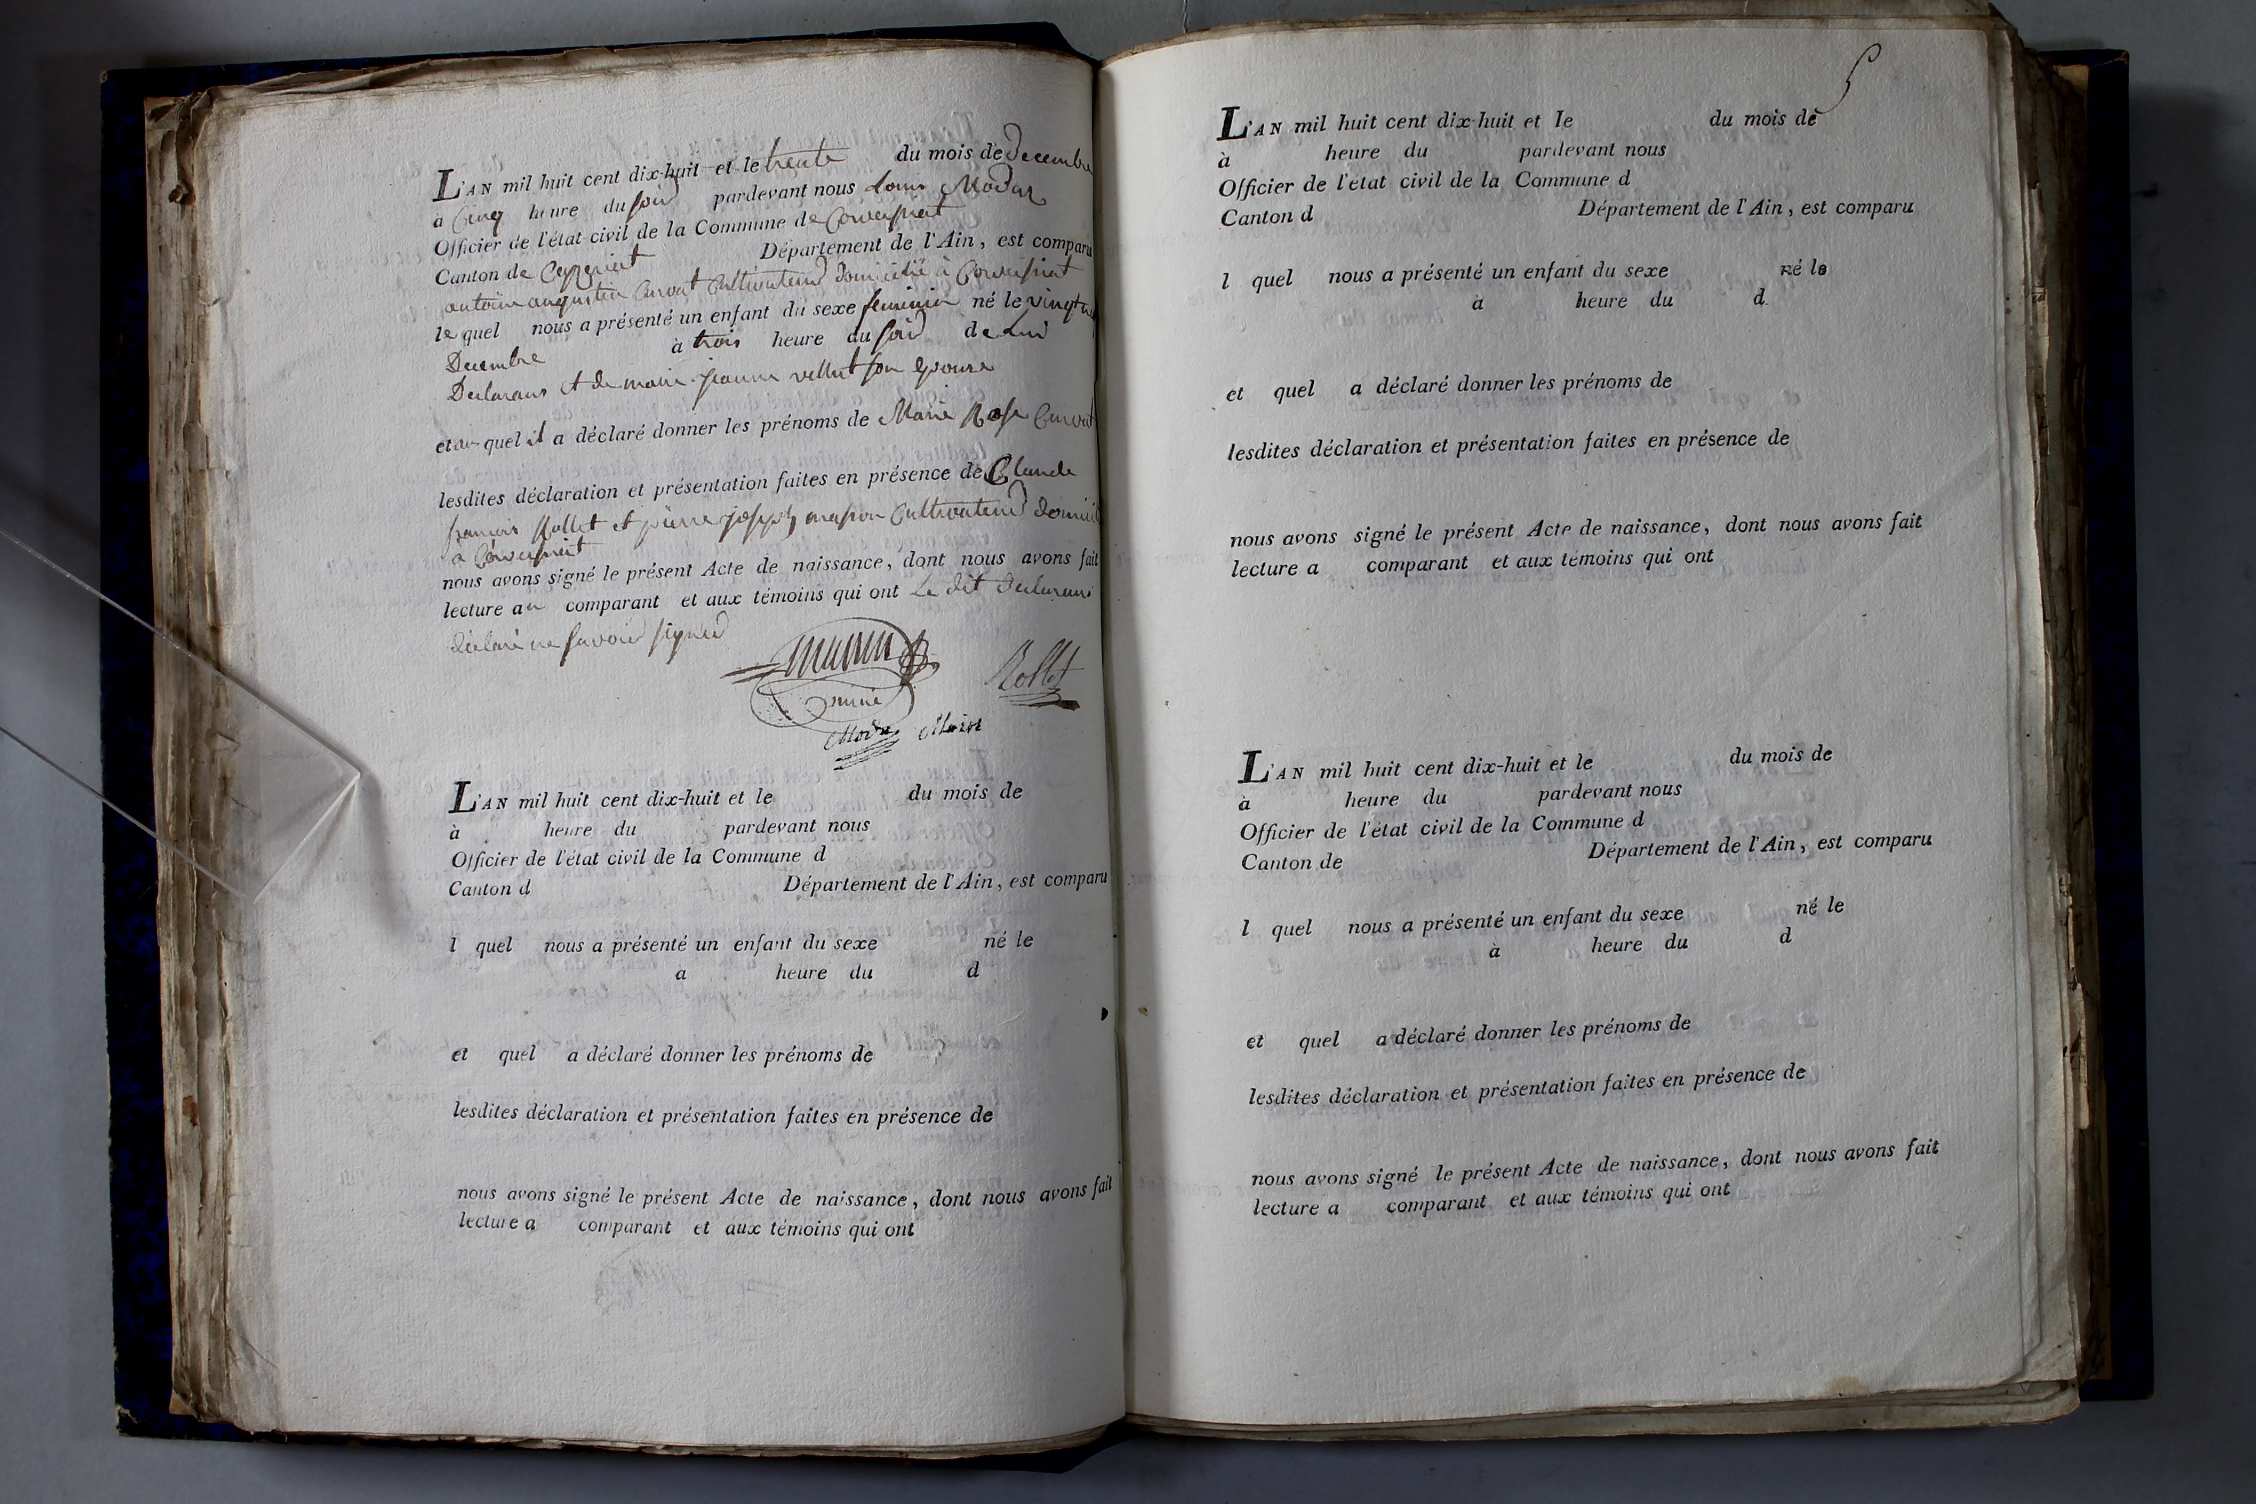 L'AN mil huit cent dix-huit et le trente du mois de decembre
à Cinq heure du soir pardevant nous Louis Modas
Officier de l'état civil de la Commune de Corveissiat
Canton de Ceyzeriat Département de l'Ain, est comparu
antoine augustin Curvat Cultivateur domicilié à Corveissiat
le quel nous a présenté un enfant du sexe feminin né le
Decembre à trois heure du soir de lui
Declarans et de marie jeanne vellet son epouse
et au quel il a déclaré donner les prénoms de Marie Rose Curvat
lesdites déclaration et présentation faites en présence de Claude
francois Rollet et pierre joseph masson Cultivateur
à Corveissiat
nous avons signé le présent Acte de naissance, dont nous avons fait
lecture au comparant et aux témoins qui ont Le dit declarans
déclaré ne savoir signer
Rollet
Maire
L'AN mil huit cent dix-huit et le du mois de
à heure du pardevant nous
Officier de l'état civil de la Commune d
Canton d Département de l'Ain, est comparu
l quel nous a présenté un enfant du sexe né le
a heure du d
et quel a déclaré donner les prénoms de
lesdites déclaration et présentation faites en présence de
nous avons signé le présent Acte de naissance, dont nous avons fait
lecture a comparant et aux témoins qui ont
5
L'AN mil huit cent dix-huit et le du mois de
à heure du pardevant nous
Officier de l'état civil de la Commune d
Canton d Département de l'Ain, est comparu
l quel nous a présenté un enfant du sexe né le
a heure du d
et quel a déclaré donner les prénoms de
lesdites déclaration et présentation faites en présence de
nous avons signé le présent Acte de naissance, dont nous avons fait
lecture a comparant et aux témoins qui ont
L'AN mil huit cent dix-huit et le du mois de
à heure du pardevant nous
Officier de l'état civil de la Commune d
Canton de Département de l'Ain, est comparu
l quel nous a présenté un enfant du sexe né le
à heure du d
et quel a déclaré donner les prénoms de
lesdites déclaration et présentation faites en présence de
nous avons signé le présent Acte de naissance, dont nous avons fait
lecture a comparant et aux témoins qui ont